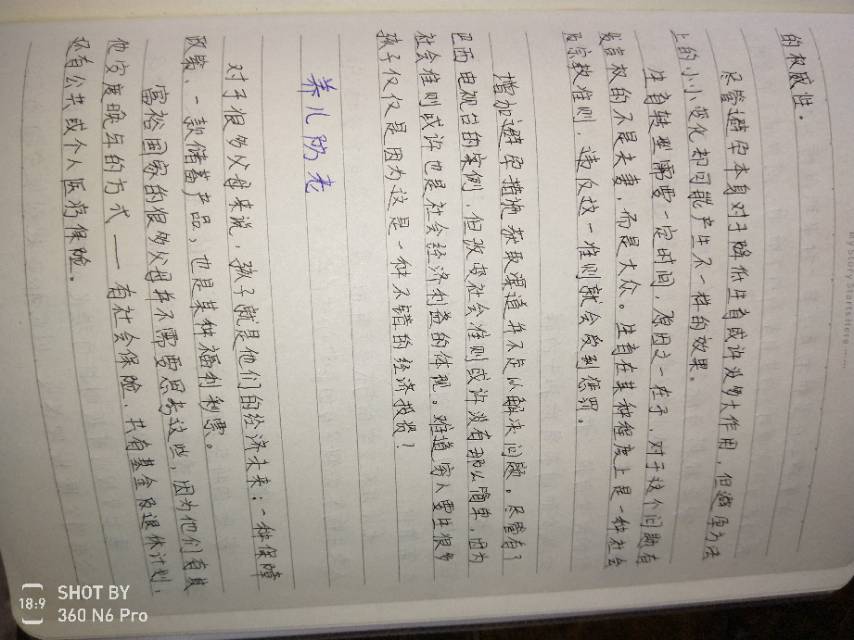 My Story Starts Here ......
的权威性。
尽管避孕本身对于降低生育或许没多大作用，但避孕方法
上的小小变化却可能产生不一样的效果。
生育转型需要一定时间，原因之一在于，对于这个问题有
发言权的不是夫妻，而是大众。生育在某种程度上是一种社会
及宗教准则，违反这一准则就会受到惩罚。
增加避孕措施获取渠道并不足以解决问题。尽管有了
巴西电视台的案例，但改变社会准则或许没有那么简单，因为
社会准则或许也是社会经济利益的体现。难道穷人要生很多
孩子仅仅是因为这是一种不错的经济投资？
养儿防老
对于很多父母来说，孩子就是他们的经济未来：一种保障
政策、一款储蓄产品，也是某种福利彩票。
富裕国家的很多父母并不需要思考这些，因为他们有其
他安度晚年的方式——有社会保险、共有基金及退休计划，
还有公共或个人医疗保险。
18:9
SHOT BY
360 N6 Pro